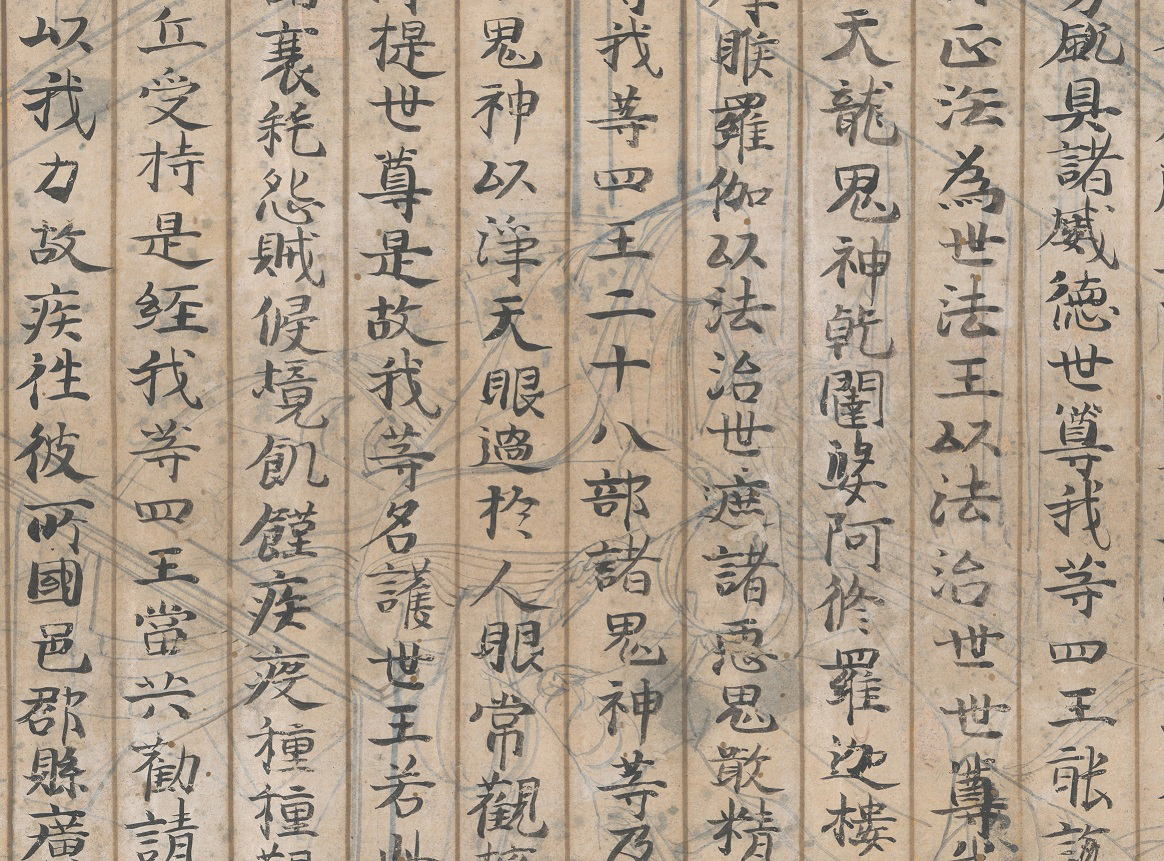 銳具諸威德世尊我等四王能說
正法為世法王以法治世世尊
天龍鬼神乾闥婆阿修羅迦樓
睺羅伽以法治世遮諸惡鬼噉精
我等四王二十八部諸鬼神等及
鬼神以淨天眼過於人眼常觀擁
提世尊是故我等名護世王若此
衰耗怨賊侵境飢饉疾疫種種艱
丘受持是經我等四王當共勸請
以我力故疾往彼所國邑郡縣廣